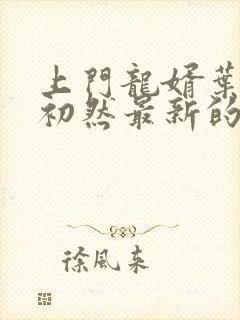 上門龍婿葉
初然最新的
徐風來